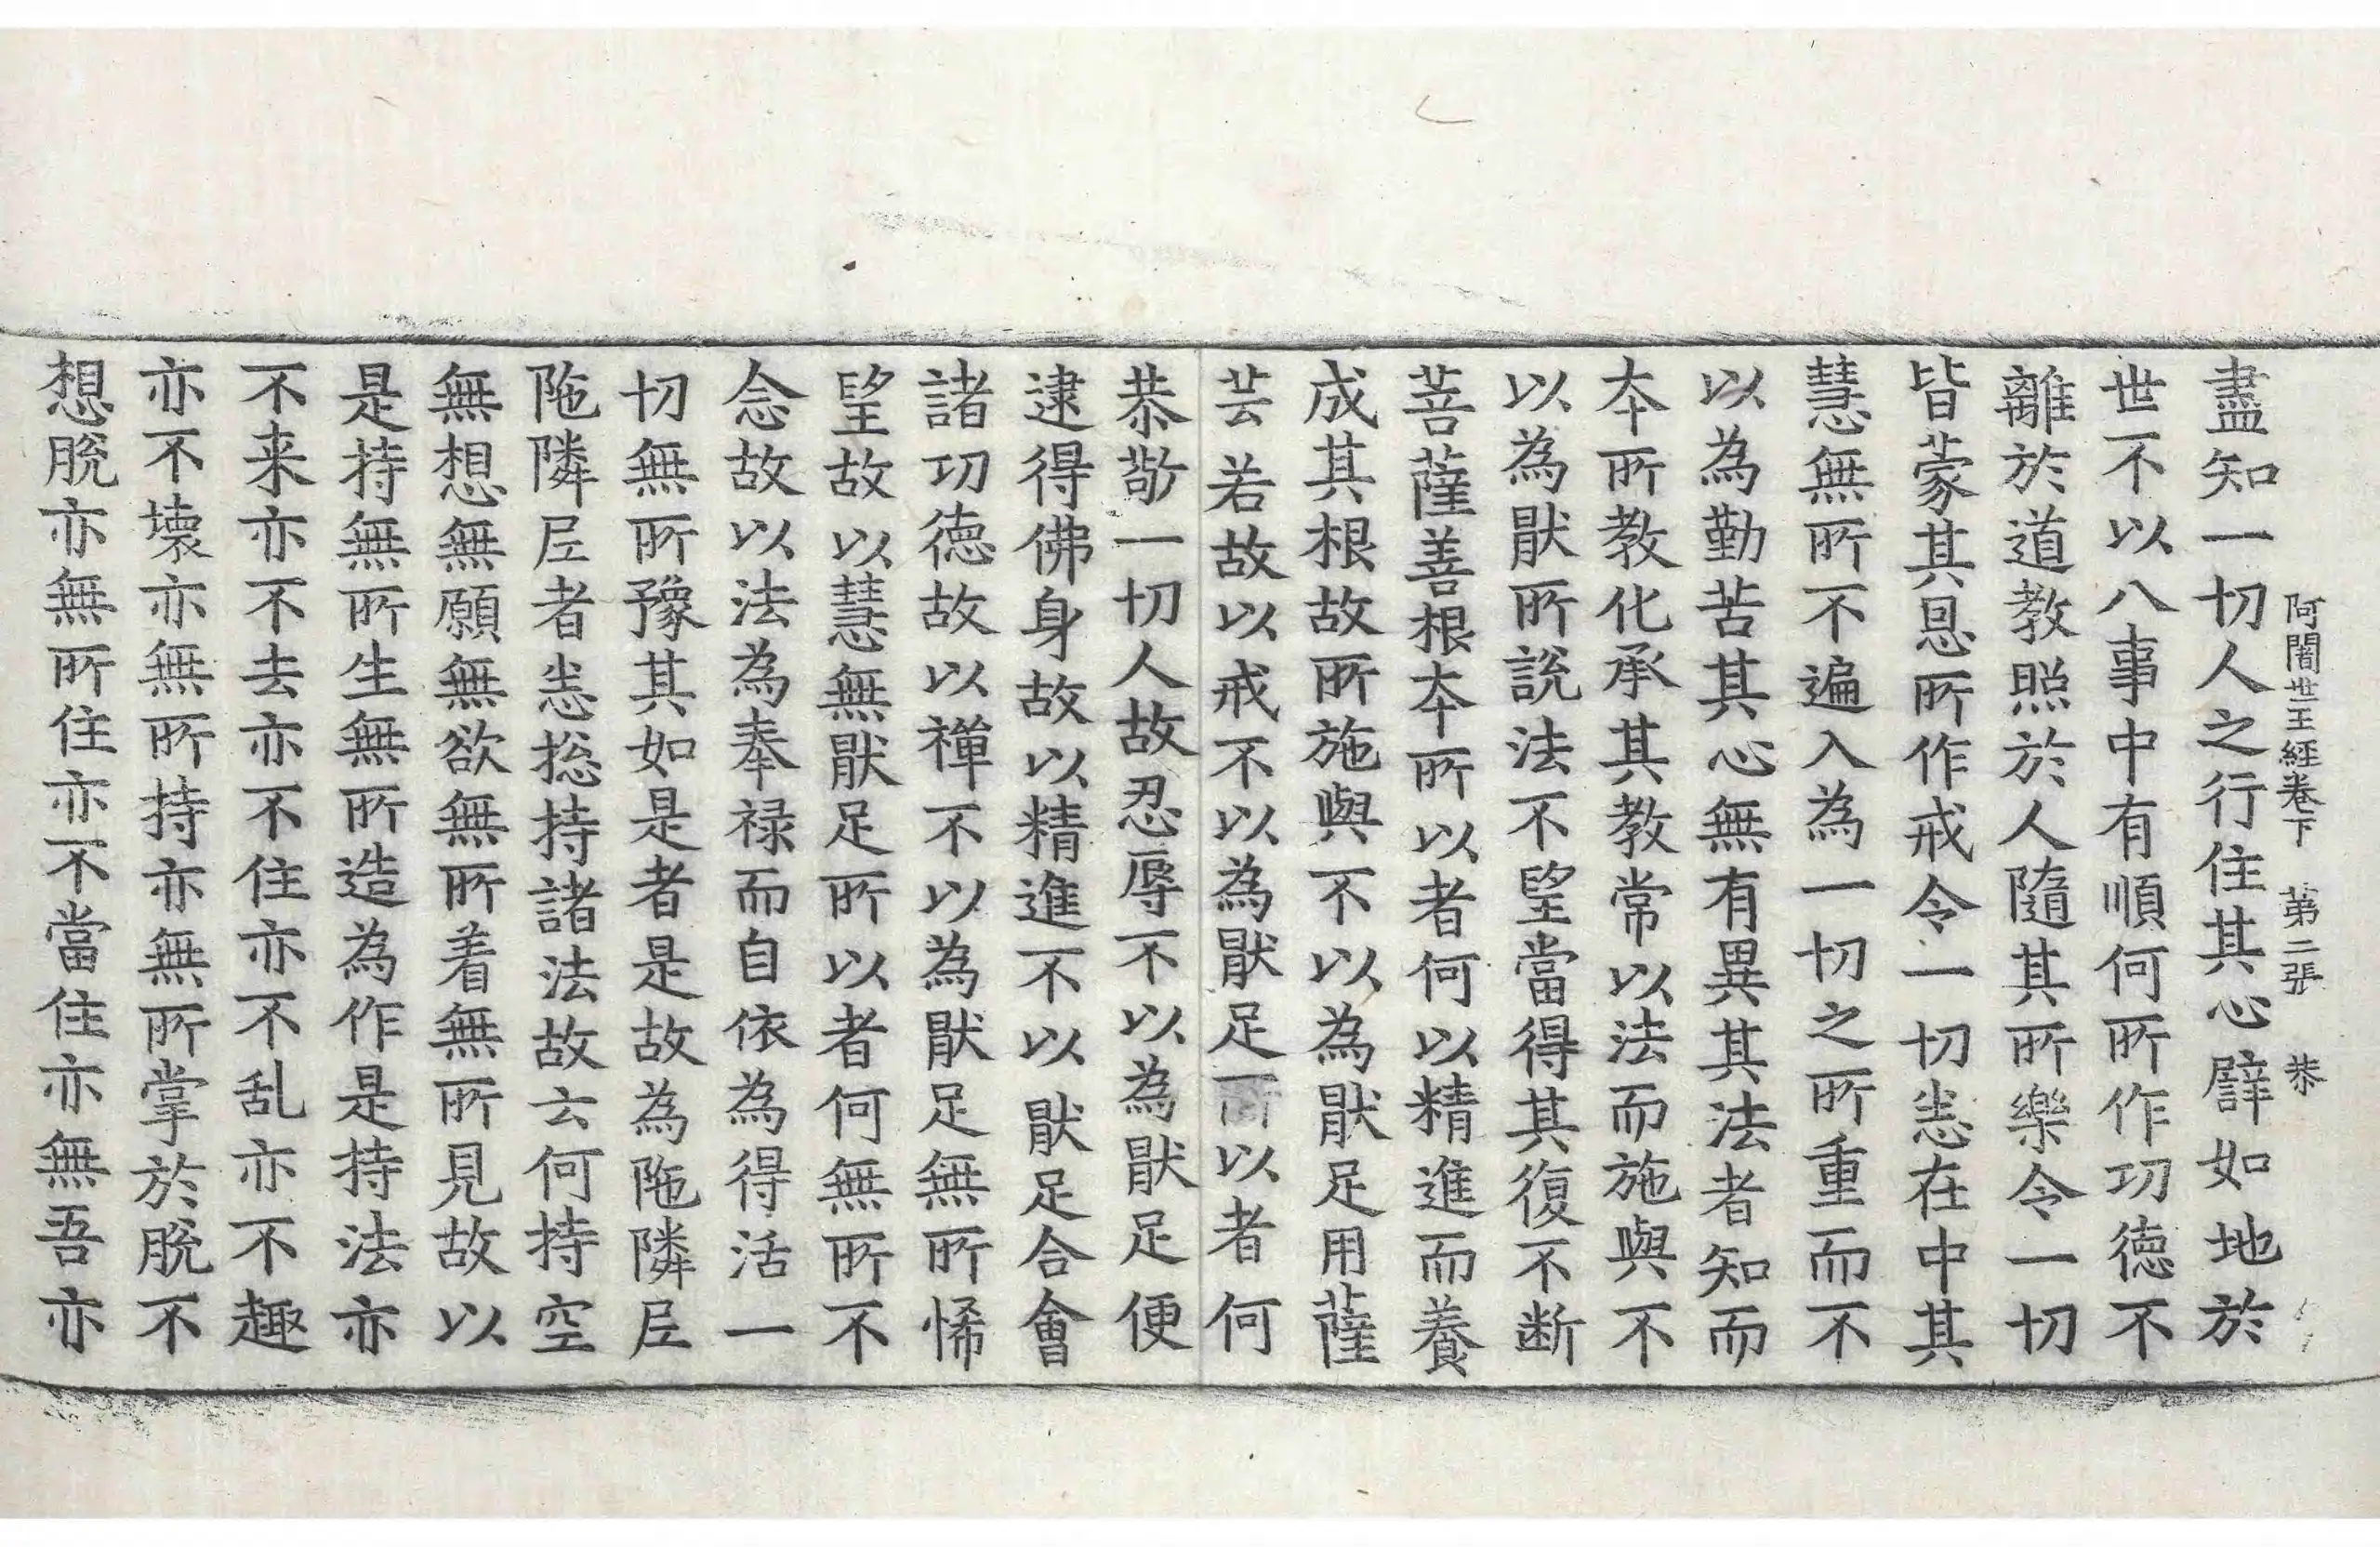 阿闍世王經卷下　第二張　恭
盡知一切人之行住其心譬如地於
世不以八事中有順何所作功德不
離於道教照於人隨其所樂令一切
皆蒙其恩所作戒令一切悉在中其
慧無所不遍入為一切之所重而不
以為勤苦其心無有異其法者知而
本所教化承其教常以法而施與不
以為猒所說法不望當得其復不断
菩薩善根本所以者何以精進而養
成其根故所施與不以為猒足用薩
芸若故以戒不以為猒足所以者何
恭敬一切人故忍辱不以為猒足便
逮得佛身故以精進不以猒足合會
諸功德故以禪不以為猒足無所悕
望故以慧無猒足所以者何無所不
念故以法為奉禄而自依為得活一
切無所豫其如是者是故為陁隣尼
陁隣尼者悉揔持諸法故云何持空
無想無願無欲無所着無所見故以
是持無所生無所造為作是持法亦
不来亦不去亦不住亦不乱亦不趣
亦不壞亦無所持亦無所掌於脫不
想脫亦無所住亦不當住亦無吾亦